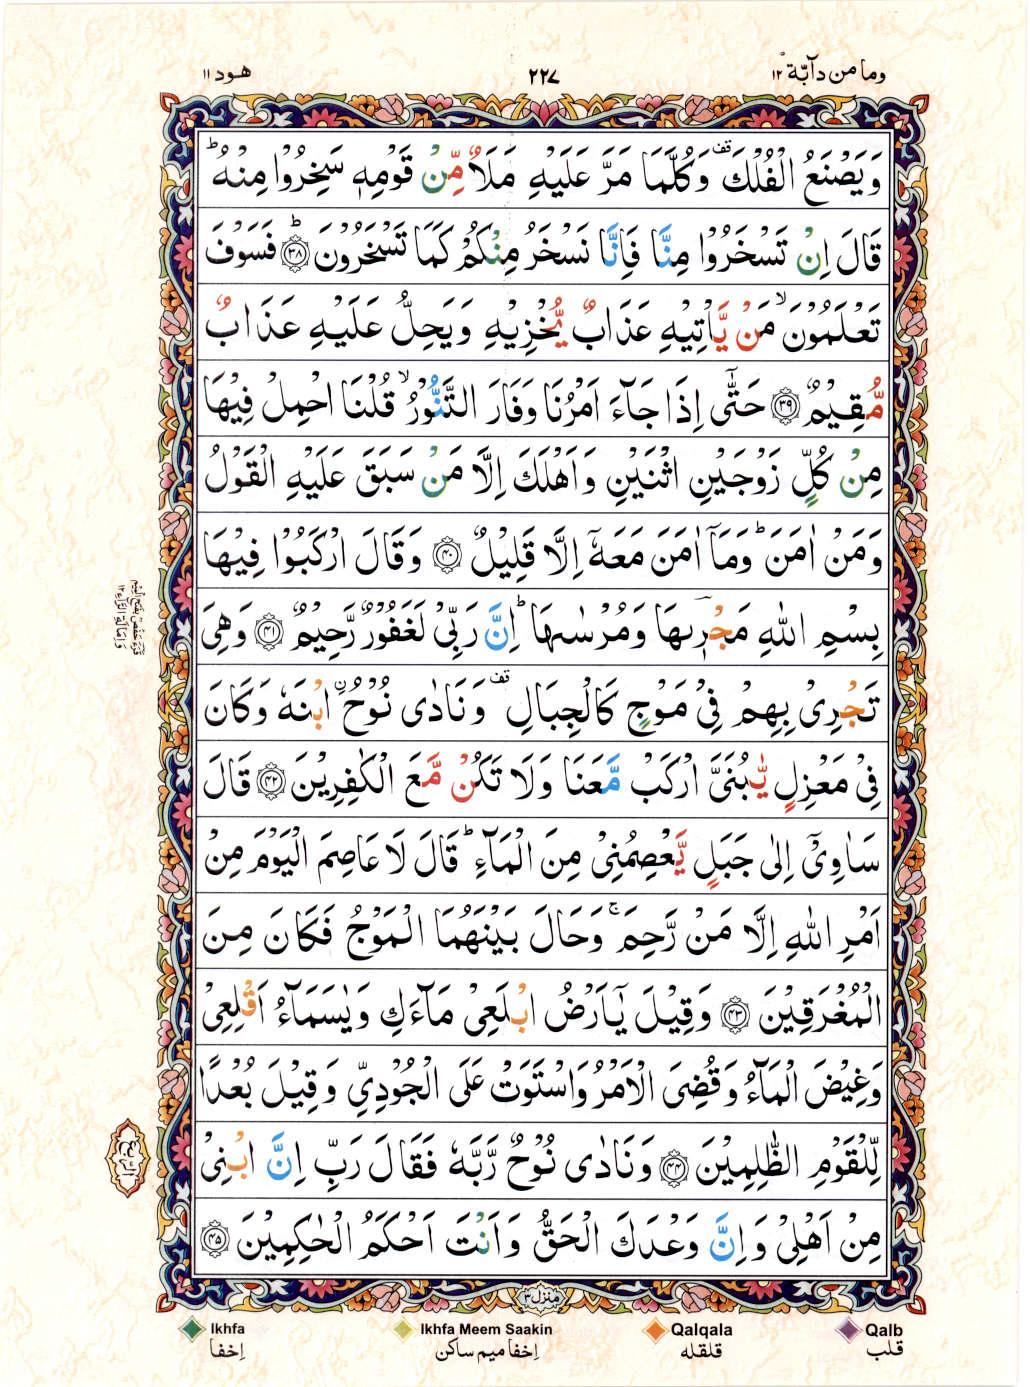 وما من دآبّة ١٢
٢٢٧
هود ١١
وَيَصْنَعُ الْفُلْكَ قف وَكُلَّمَا مَرَّ عَلَيْهِ مَلَاٌ مِّنْ قَوْمِهٖ سَخِرُوْا مِنْهُ ؕ
قَالَ اِنْ تَسْخَرُوْا مِنَّا فَاِنَّا نَسْخَرُ مِنْكُمْ كَمَا تَسْخَرُوْنَ ؕ ﴿٣٨﴾ فَسَوْفَ
تَعْلَمُوْنَ ۙ مَنْ يَّاْتِيْهِ عَذَابٌ يُّخْزِيْهِ وَيَحِلُّ عَلَيْهِ عَذَابٌ
مُّقِيْمٌ ﴿٣٩﴾ حَتّٰۤى اِذَا جَآءَ اَمْرُنَا وَفَارَ التَّنُّوْرُ ۙ قُلْنَا احْمِلْ فِيْهَا
مِنْ كُلٍّ زَوْجَيْنِ اثْنَيْنِ وَاَهْلَكَ اِلَّا مَنْ سَبَقَ عَلَيْهِ الْقَوْلُ
وَمَنْ اٰمَنَ ؕ وَمَاۤ اٰمَنَ مَعَهٗۤ اِلَّا قَلِيْلٌ ﴿٤٠﴾ وَقَالَ ارْكَبُوْا فِيْهَا
بِسْمِ اللّٰهِ مَجْرٖٮهَا وَمُرْسٰٮهَا ؕ اِنَّ رَبِّىْ لَغَفُوْرٌ رَّحِيْمٌ ﴿٤١﴾ وَهِىَ
تَجْرِىْ بِهِمْ فِىْ مَوْجٍ كَالْجِبَالِ قف وَنَادٰى نُوْحُ ۨ ابْنَهٗ وَكَانَ
فِىْ مَعْزِلٍ يّٰبُنَىَّ ارْكَبْ مَّعَنَا وَلَا تَكُنْ مَّعَ الْكٰفِرِيْنَ ﴿٤٢﴾ قَالَ
سَاٰوِىْۤ اِلٰى جَبَلٍ يَّعْصِمُنِىْ مِنَ الْمَآءِ ؕ قَالَ لَا عَاصِمَ الْيَوْمَ مِنْ
اَمْرِ اللّٰهِ اِلَّا مَنْ رَّحِمَ ۚ وَحَالَ بَيْنَهُمَا الْمَوْجُ فَكَانَ مِنَ
الْمُغْرَقِيْنَ ﴿٤٣﴾ وَقِيْلَ يٰۤاَرْضُ ابْلَعِىْ مَآءَكِ وَيٰسَمَآءُ اَقْلِعِىْ
وَغِيْضَ الْمَآءُ وَقُضِىَ الْاَمْرُ وَاسْتَوَتْ عَلَى الْجُوْدِىِّ وَقِيْلَ بُعْدًا
لِّلْقَوْمِ الظّٰلِمِيْنَ ﴿٤٤﴾ وَنَادٰى نُوْحٌ رَّبَّهٗ فَقَالَ رَبِّ اِنَّ ابْنِىْ
مِنْ اَهْلِىْ وَاِنَّ وَعْدَكَ الْحَقُّ وَاَنْتَ اَحْكَمُ الْحٰكِمِيْنَ ﴿٤٥﴾
الربع
منزل ٣
Ikhfa
اِخفا
Ikhfa Meem Saakin
اِخفا ميم ساكن
Qalqala
قلقله
Qalb
قلب